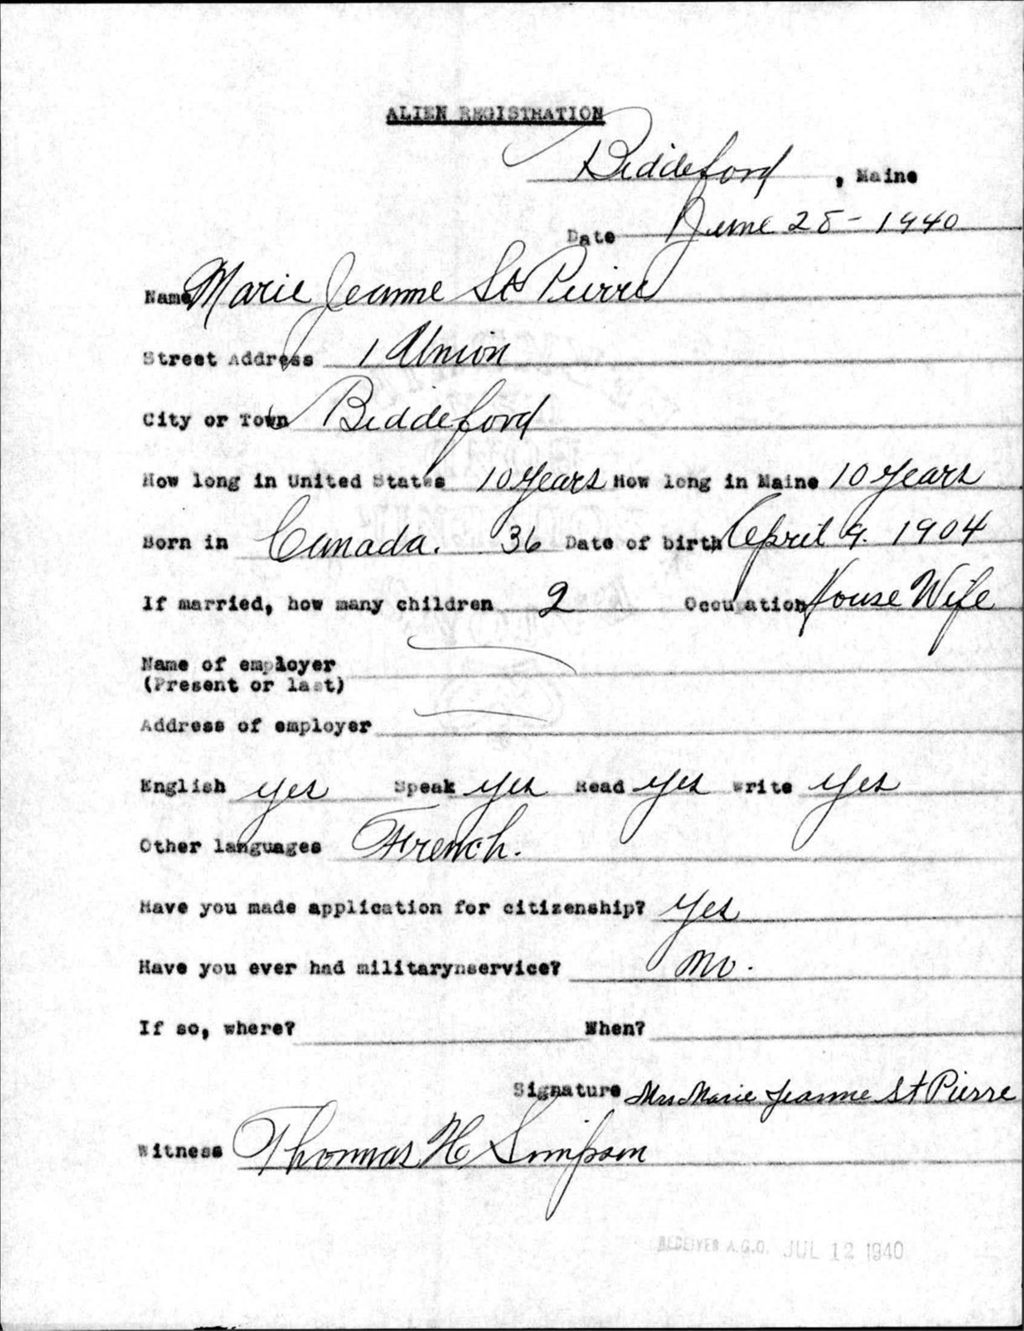 ALIEN REGISTRATION
Biddeford, Maine
Date June 28-1940
Name Marie Jeanne St Pierre
Street Address 1 Union
City or Town Biddeford
How long in United States 10 years How long in Maine 10 years
Born in Canada. 36 Date of birth April 9. 1904
If married, how many children 2 Occupation House Wife
Name of employer
(Present or last)
Address of employer
English yes Speak yes Read yes Write yes
Other languages French.
Have you made application for citizenship? yes
Have you ever had militarynservice? no.
If so, where? When?
Signature Mrs Marie Jeanne St Pierre
Witness Thommas H Simpson
RECEIVED A.G.O. JUL 12 1940